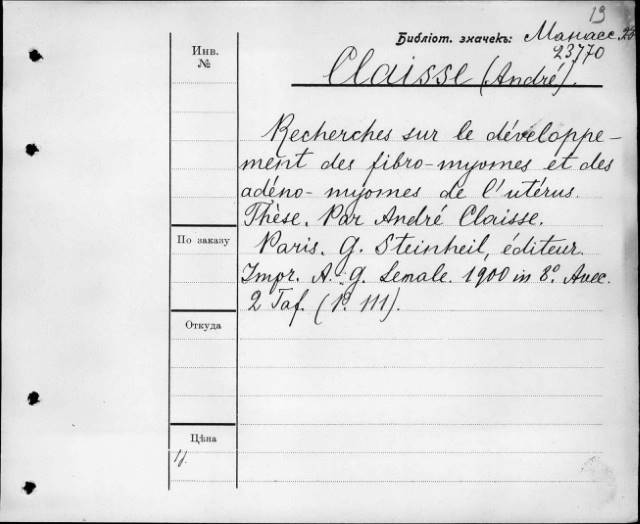 19
Библіот. значекъ: Манасс.
23770
Инв.
№
Claisse (André).
Recherches sur le développe-
ment des fibro-myomes et des
adéno-myomes de l'utérus.
Thèse. Par André Claisse.
По заказу
Paris. G. Steinheil, éditeur.
Impr. A. g. Lemale. 1900 in 8º. Avec
2 Taf. (P. 111).
Откуда
Цѣна